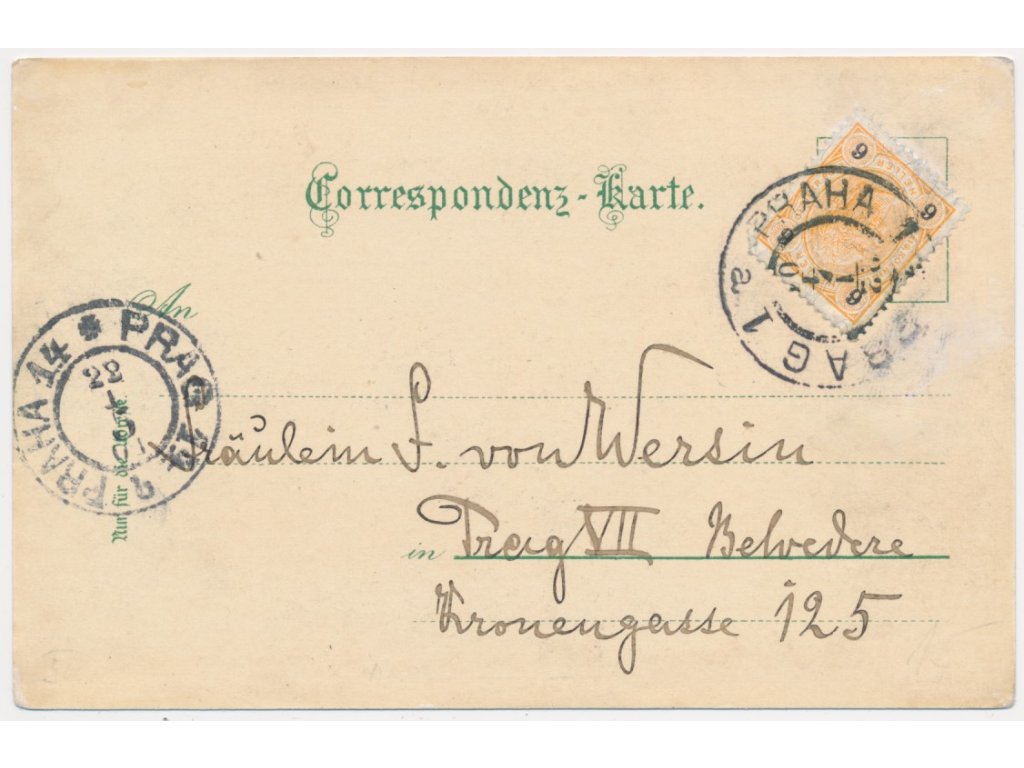 Correspondenz-Karte.
6
6
PRAHA 1
PRAG 1 a
An
PRAG 14 *
PRAHA 14
22
Nur für die Adresse
Fräulein F. von Wersin
in Prag VII Belvedere
Kronengasse 125